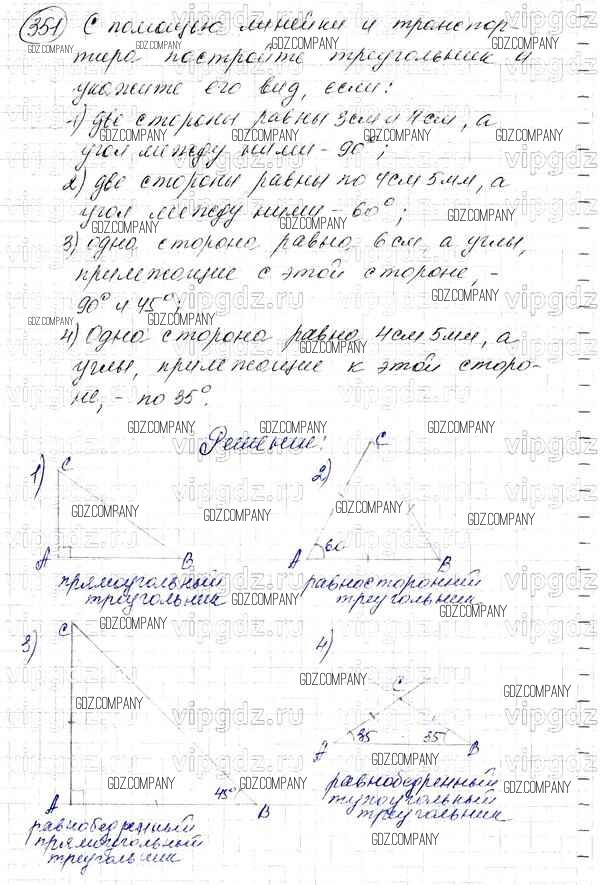 351 С помощью линейки и транспор-
тира постройте треугольник и
укажите его вид, если:
1) две стороны равны 3см и 4см, а
угол между ними - 90°;
2) две стороны равны по 4см 5мм, а
угол между ними - 60°;
3) одна сторона равна 6см, а углы,
прилежащие с этой стороне, -
90° и 45°;
4) Одна сторона равна 4см 5мм, а
углы, прилежащие к этой сторо-
не, - по 35°.
Решение:
1) C
A B
прямоугольный
треугольник
2) C
60
A B
равносторонний
треугольник
3) C
45°
A B
равнобедренный
прямоугольный
треугольник
4) C
35 35
A B
равнобедренный
тупоугольный
треугольник
GDZ.COMPANY
vipgdz.ru